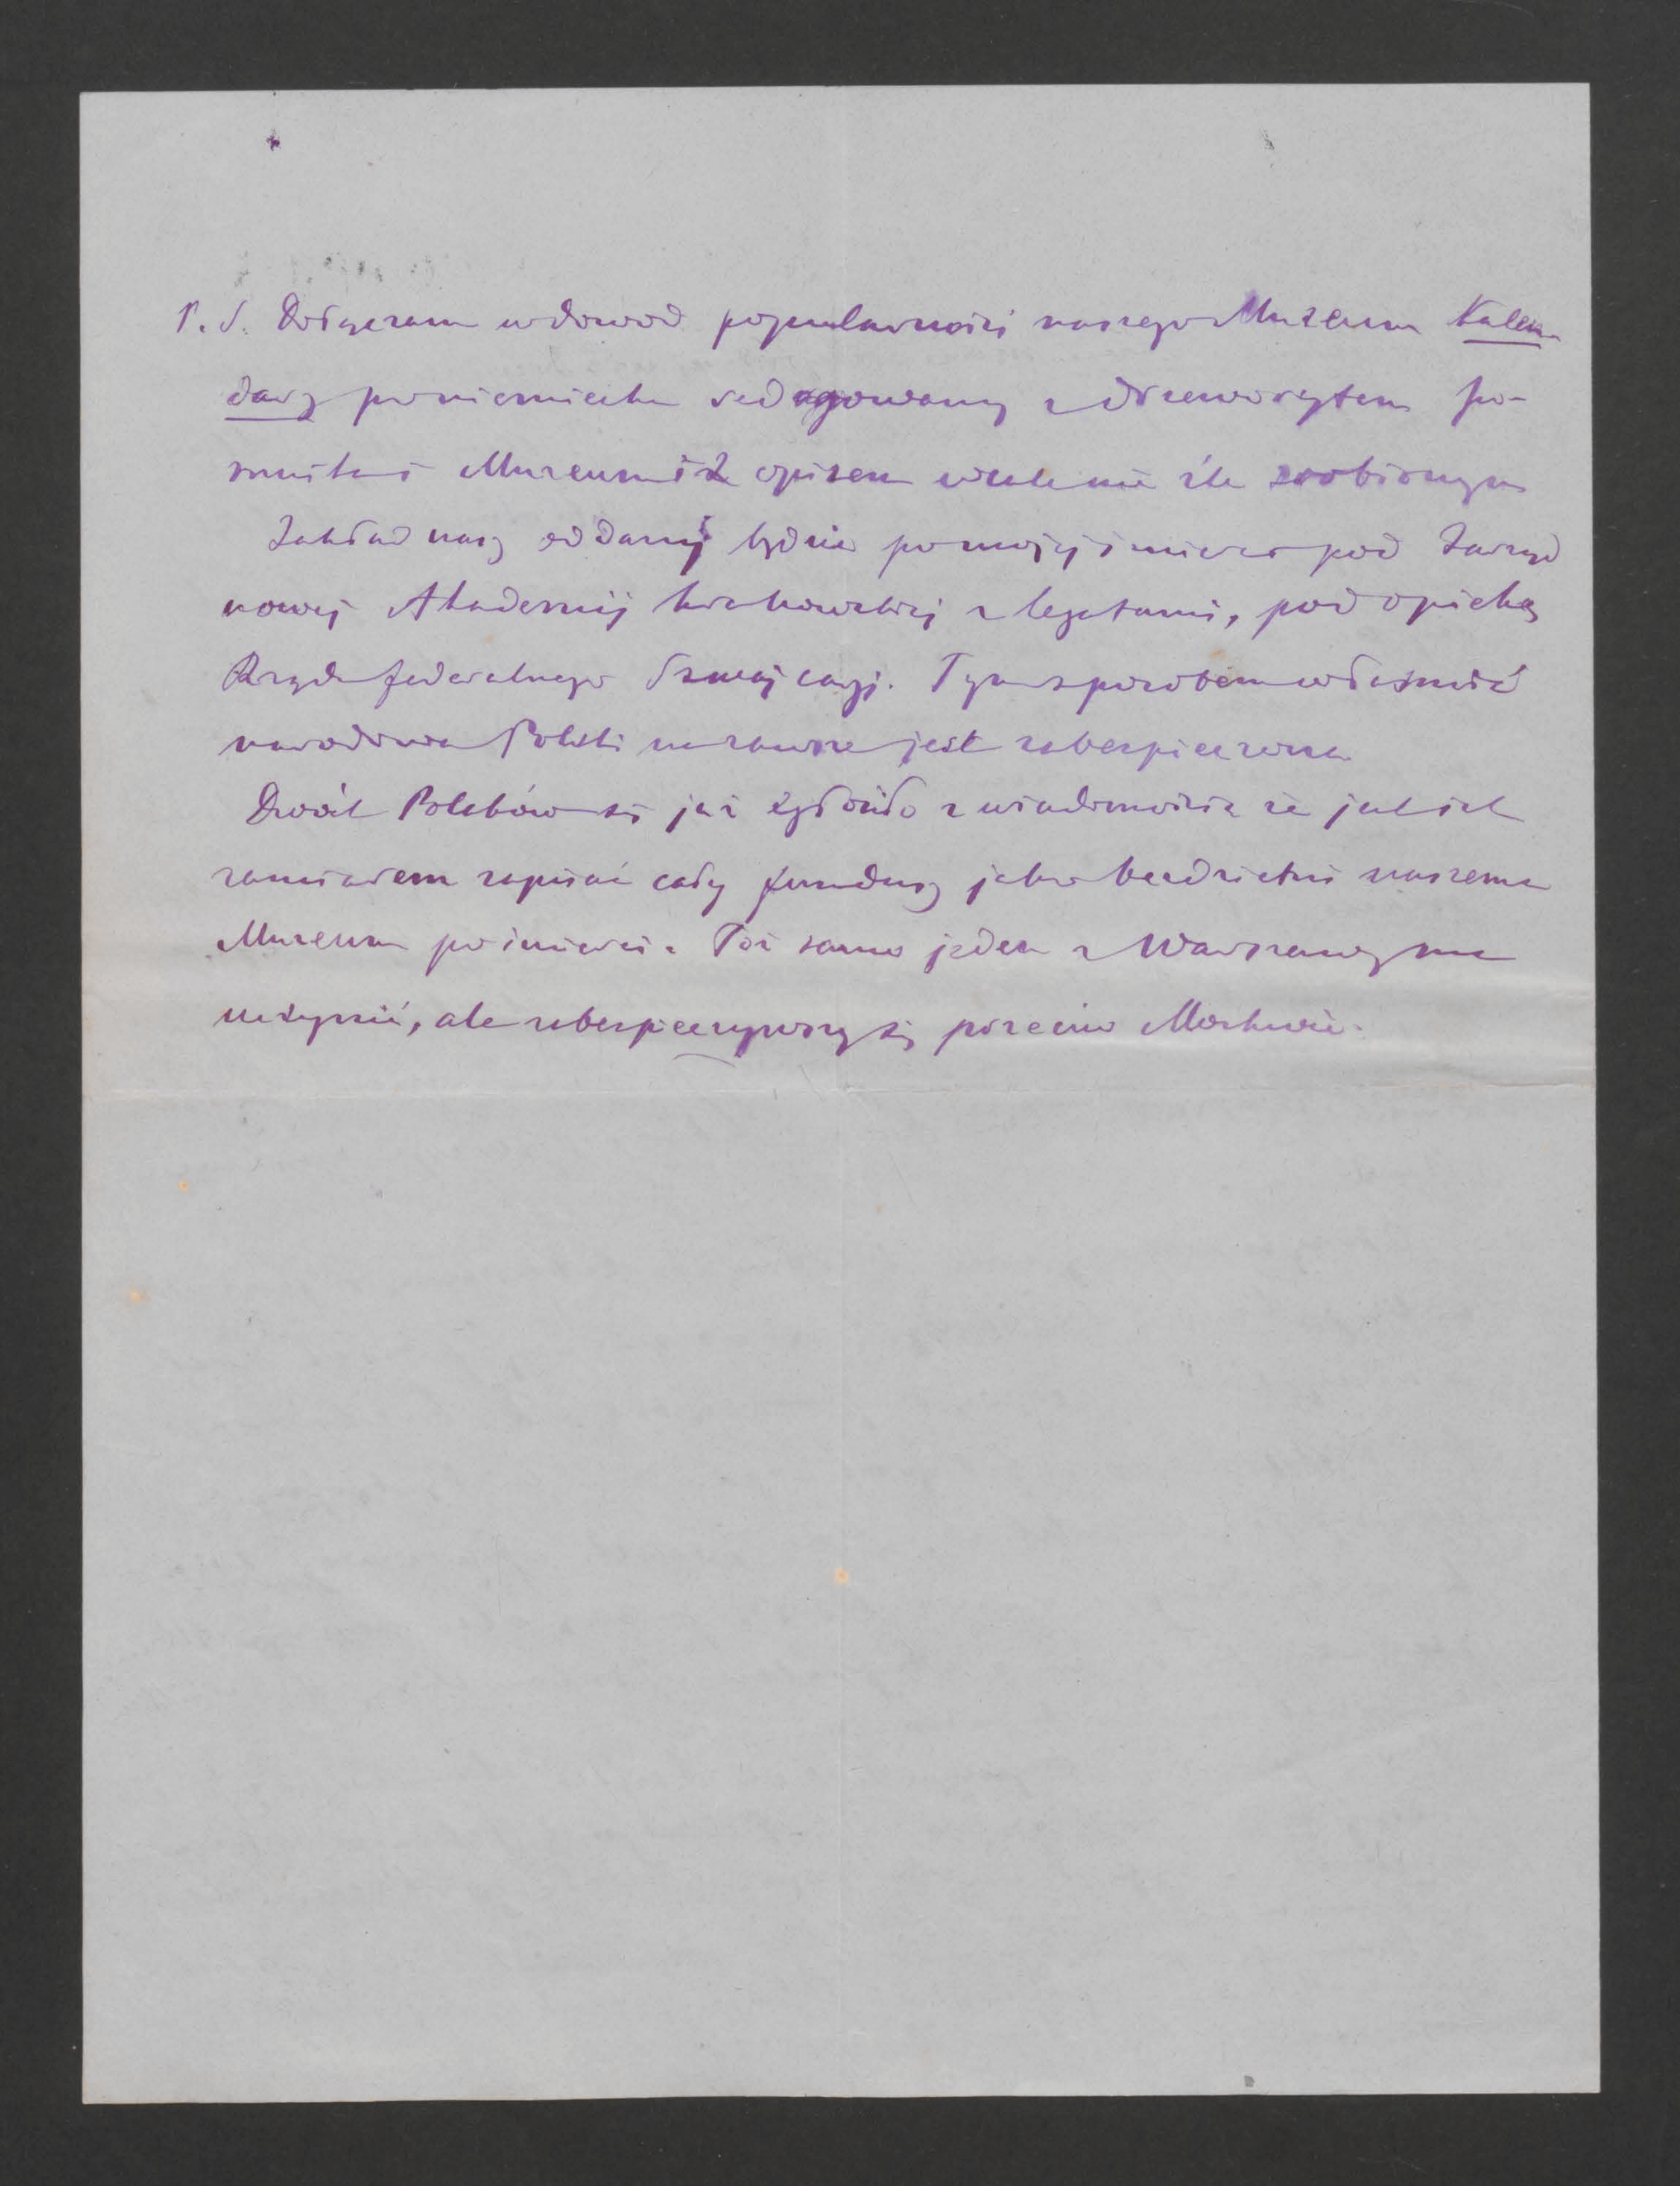 P. S. Dołączam w dowod popularności naszego Muzeum Kalen-
darz poniemiecku redagowany z drzeworytem po-
mnika i Muzeum i z opisem wcale nie źle zrobionym
Zakład nasz oddany będzie po mojej śmierci pod Zarząd
nowej Akademij krakowskiej z legatami, pod opieką
Rządu federalnego Szwajcaryi. Tym sposobem własność
narodowa Polski na zawsze jest zabezpieczona
Dwóch Polaków się już zgłosiło z wiadomością że jest ich
zamiarem zapisać cały fundusz jako bezdzietni naszemu
Muzeum po śmierci. Toż samo jeden z Warszawy ma
uczynić, ale zabezpieczywszy się przeciw Moskwie.